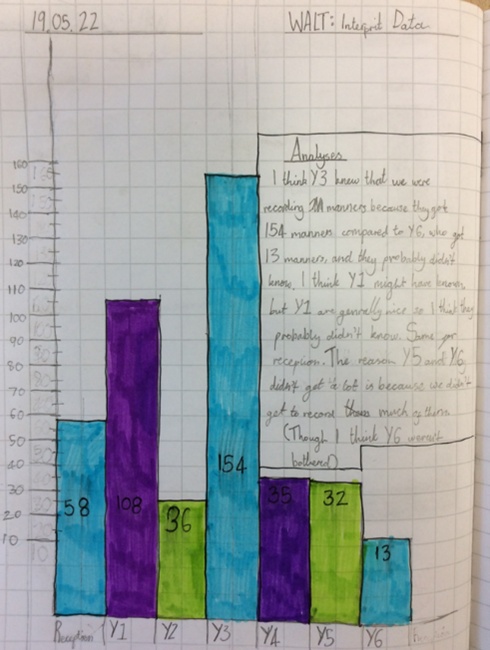 19.05.22
WALT: Interprit Data
Analyses
I think Y3 knew that we were
recording manners because they got
154 manners compared to Y6, who got
13 manners, and they probably didn't
know. I think Y1 might have known,
but Y1 are generally nice so I think they
probably didn't know. Same for
reception. The reason Y5 and Y6
didn't get a lot is because we didn't
get to record much of them
(Though I think Y6 weren't
bothered)
160
150
140
130
120
110
100
90
80
70
60
50
40
30
20
10
58
108
36
154
35
32
13
Reception
Y1
Y2
Y3
Y4
Y5
Y6